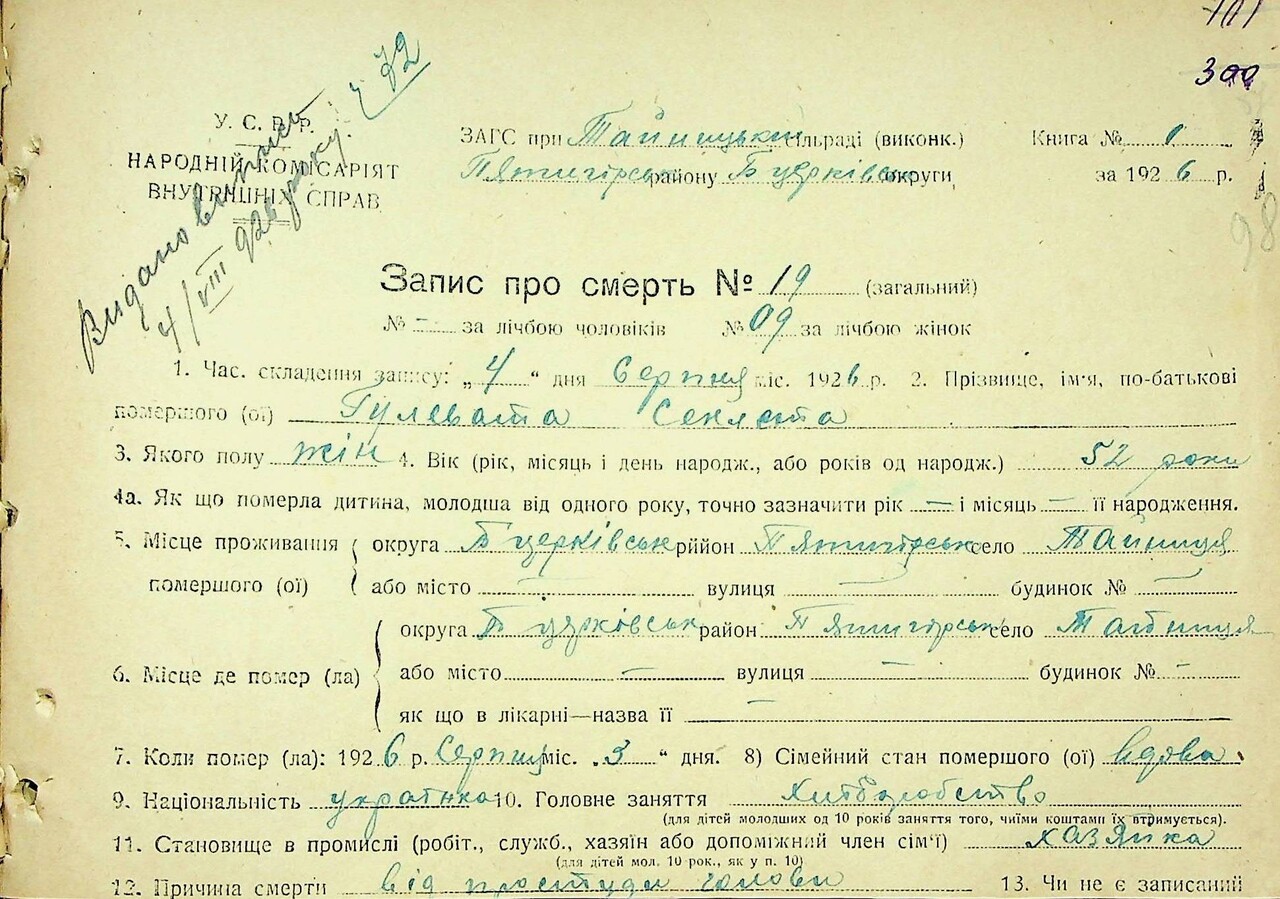 300
У. С. Р. Р.
НАРОДНІЙ КОМІСАРІЯТ
ВНУТРІШНІХ СПРАВ
Видано виписъ
4/VIII 926 року. ч 72
ЗАГС при Тайницькій сільраді (виконк.)
Книга №
Пятигірськ району Б церківськ округи
за 1926 р.
98
Запис про смерть № 19 (загальний)
№ — за лічбою чоловіків № 09 за лічбою жінок
1. Час. складення запису: „4“ дня Серпня міс. 1926 р. 2. Прізвище, ім'я, по-батькові
помершого (ої) Гулевата Секлета
3. Якого полу жін 4. Вік (рік, місяць і день народж., або років од народж.) 52 роки
4а. Як що померла дитина, молодша від одного року, точно зазначити рік — і місяць — її народження.
5. Місце проживання округа Б церківськ рййон Пятигірськ село Тайниця
помершого (ої) або місто — вулиця — будинок № —
округа Б церковськ район Пятигорськ село Тайниця
6. Місце де помер (ла) або місто — вулиця — будинок № —
як що в лікарні—назва її —
7. Коли помер (ла): 1926 р. Серпня міс. „3“ дня. 8) Сімейний стан помершого (ої) вдова
9. Національність українка 10. Головне заняття Хліборобство
(для дітей молодших од 10 років заняття того, чиїми коштами їх втримується).
11. Становище в промислі (робіт., служб., хазяїн або допоміжний член сім'ї) хазяйка
(для дітей мол. 10 рок., як у п. 10)
12. Причина смерти від простуди голови 13. Чи не є записаний